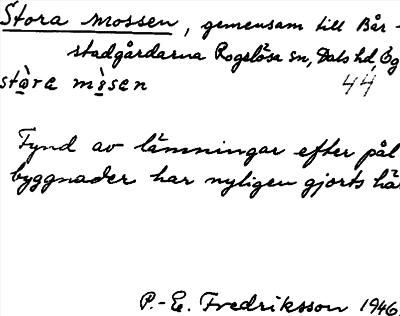 Stora mossen, gemensam till Bår-
stadgårdarna Rogslösa sn, Dals hd, Ög
stòra mòsen 44
Fynd av lämningar efter pål
byggnader har nyligen gjorts här
P.-E. Fredriksson 1946.